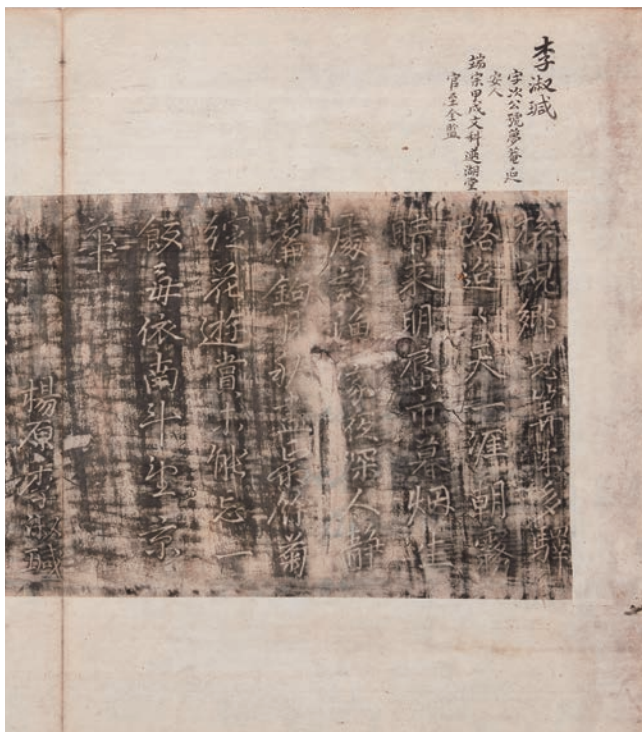 李淑瑊
字次公號夢菴延
安人
端宗甲戌文科選湖堂
官至全監
魂鄉思驛
路迢迢天一涯朝霧
晴來明蜃市暮烟生
處認漁家夜深人靜
簾鉤月秋盡竹菊
綻花遊賞不能忘一
飯每依南斗望京
華
楊原李淑瑊